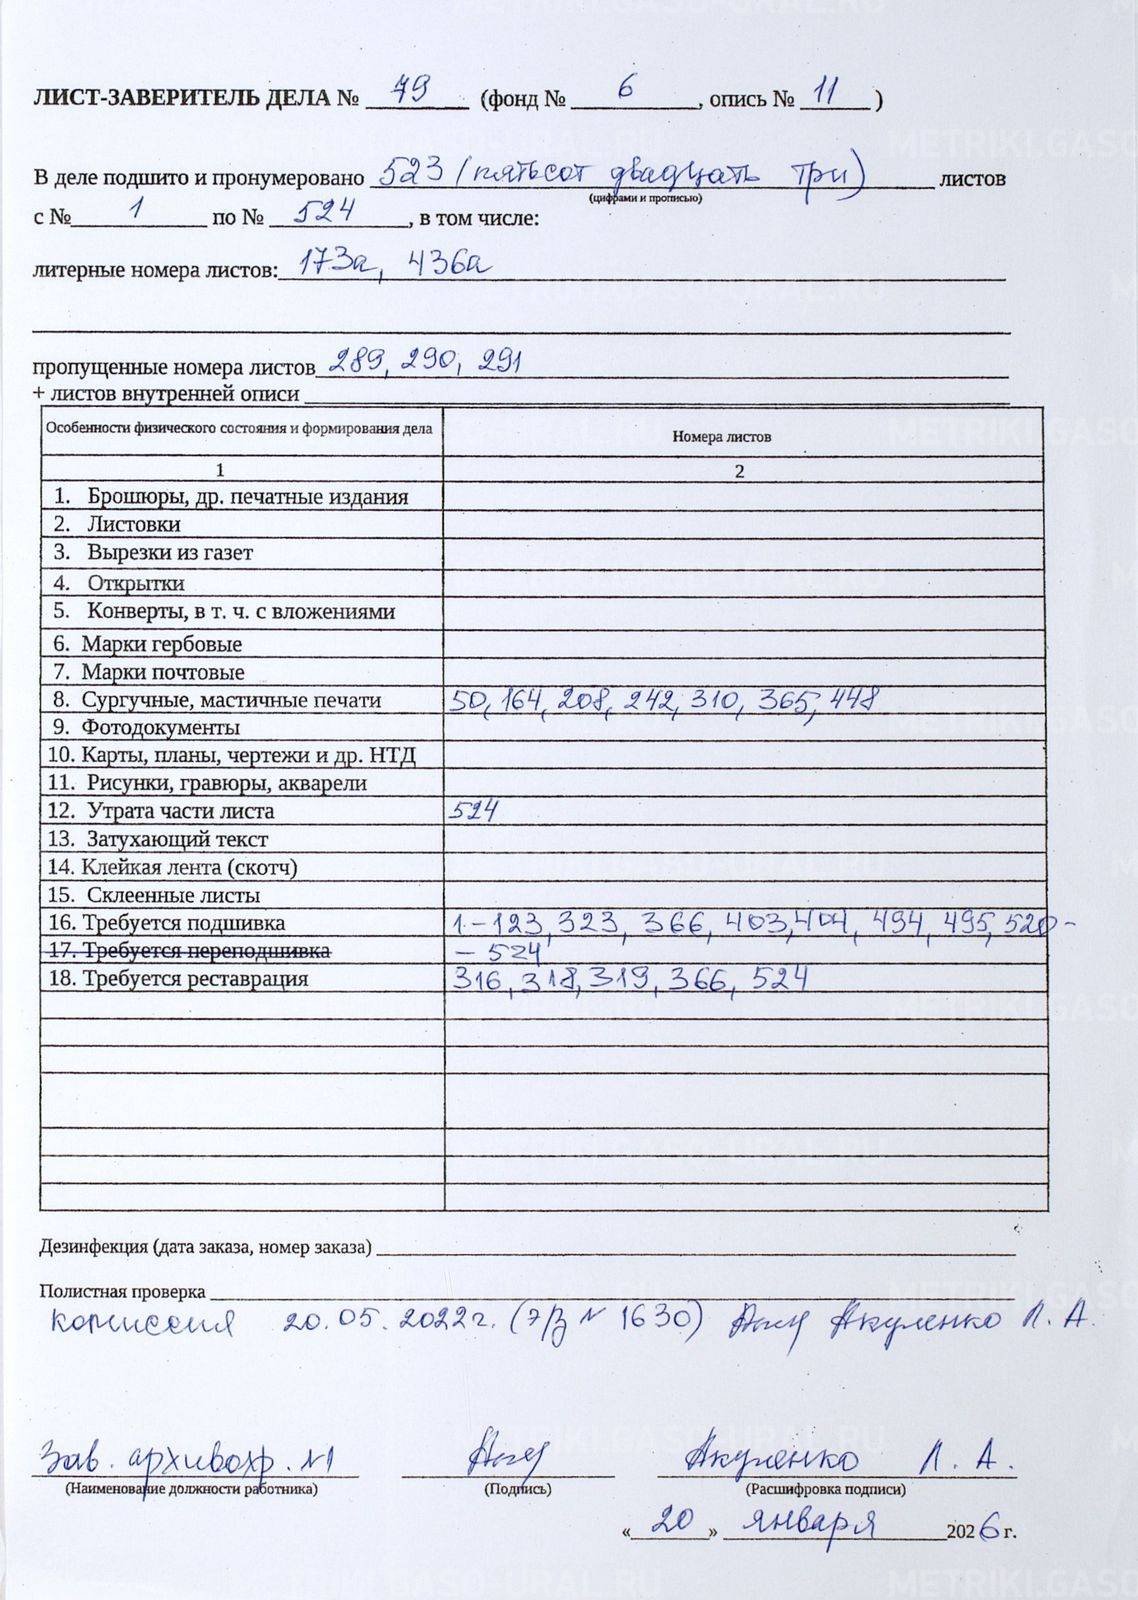 ЛИСТ-ЗАВЕРИТЕЛЬ ДЕЛА № 79 (фонд № 6, опись № 11)
В деле подшито и пронумеровано 523 (пятьсот двадцать три) листов
(цифрами и прописью)
с № 1 по № 524, в том числе:
литерные номера листов: 173а, 436а
пропущенные номера листов 289, 290, 291
+ листов внутренней описи
Особенности физического состояния и формирования дела Номера листов
1 2
1. Брошюры, др. печатные издания
2. Листовки
3. Вырезки из газет
4. Открытки
5. Конверты, в т. ч. с вложениями
6. Марки гербовые
7. Марки почтовые
8. Сургучные, мастичные печати 50, 164, 208, 242, 310, 365, 448
9. Фотодокументы
10. Карты, планы, чертежи и др. НТД
11. Рисунки, гравюры, акварели
12. Утрата части листа 524
13. Затухающий текст
14. Клейкая лента (скотч)
15. Склеенные листы
16. Требуется подшивка 1-123, 323, 366, 403, 404, 494, 495, 520-
17. Требуется переподшивка - 524
18. Требуется реставрация 316, 318, 319, 366, 524
Дезинфекция (дата заказа, номер заказа)
Полистная проверка
комиссия 20.05.2022г. (э/з № 1630) Акуленко Л. А.
Зав. архивохр. №1 Акуленко Л. А.
(Наименование должности работника) (Подпись) (Расшифровка подписи)
«20» января 2026 г.
METRIKI.GASO-URAL.RU